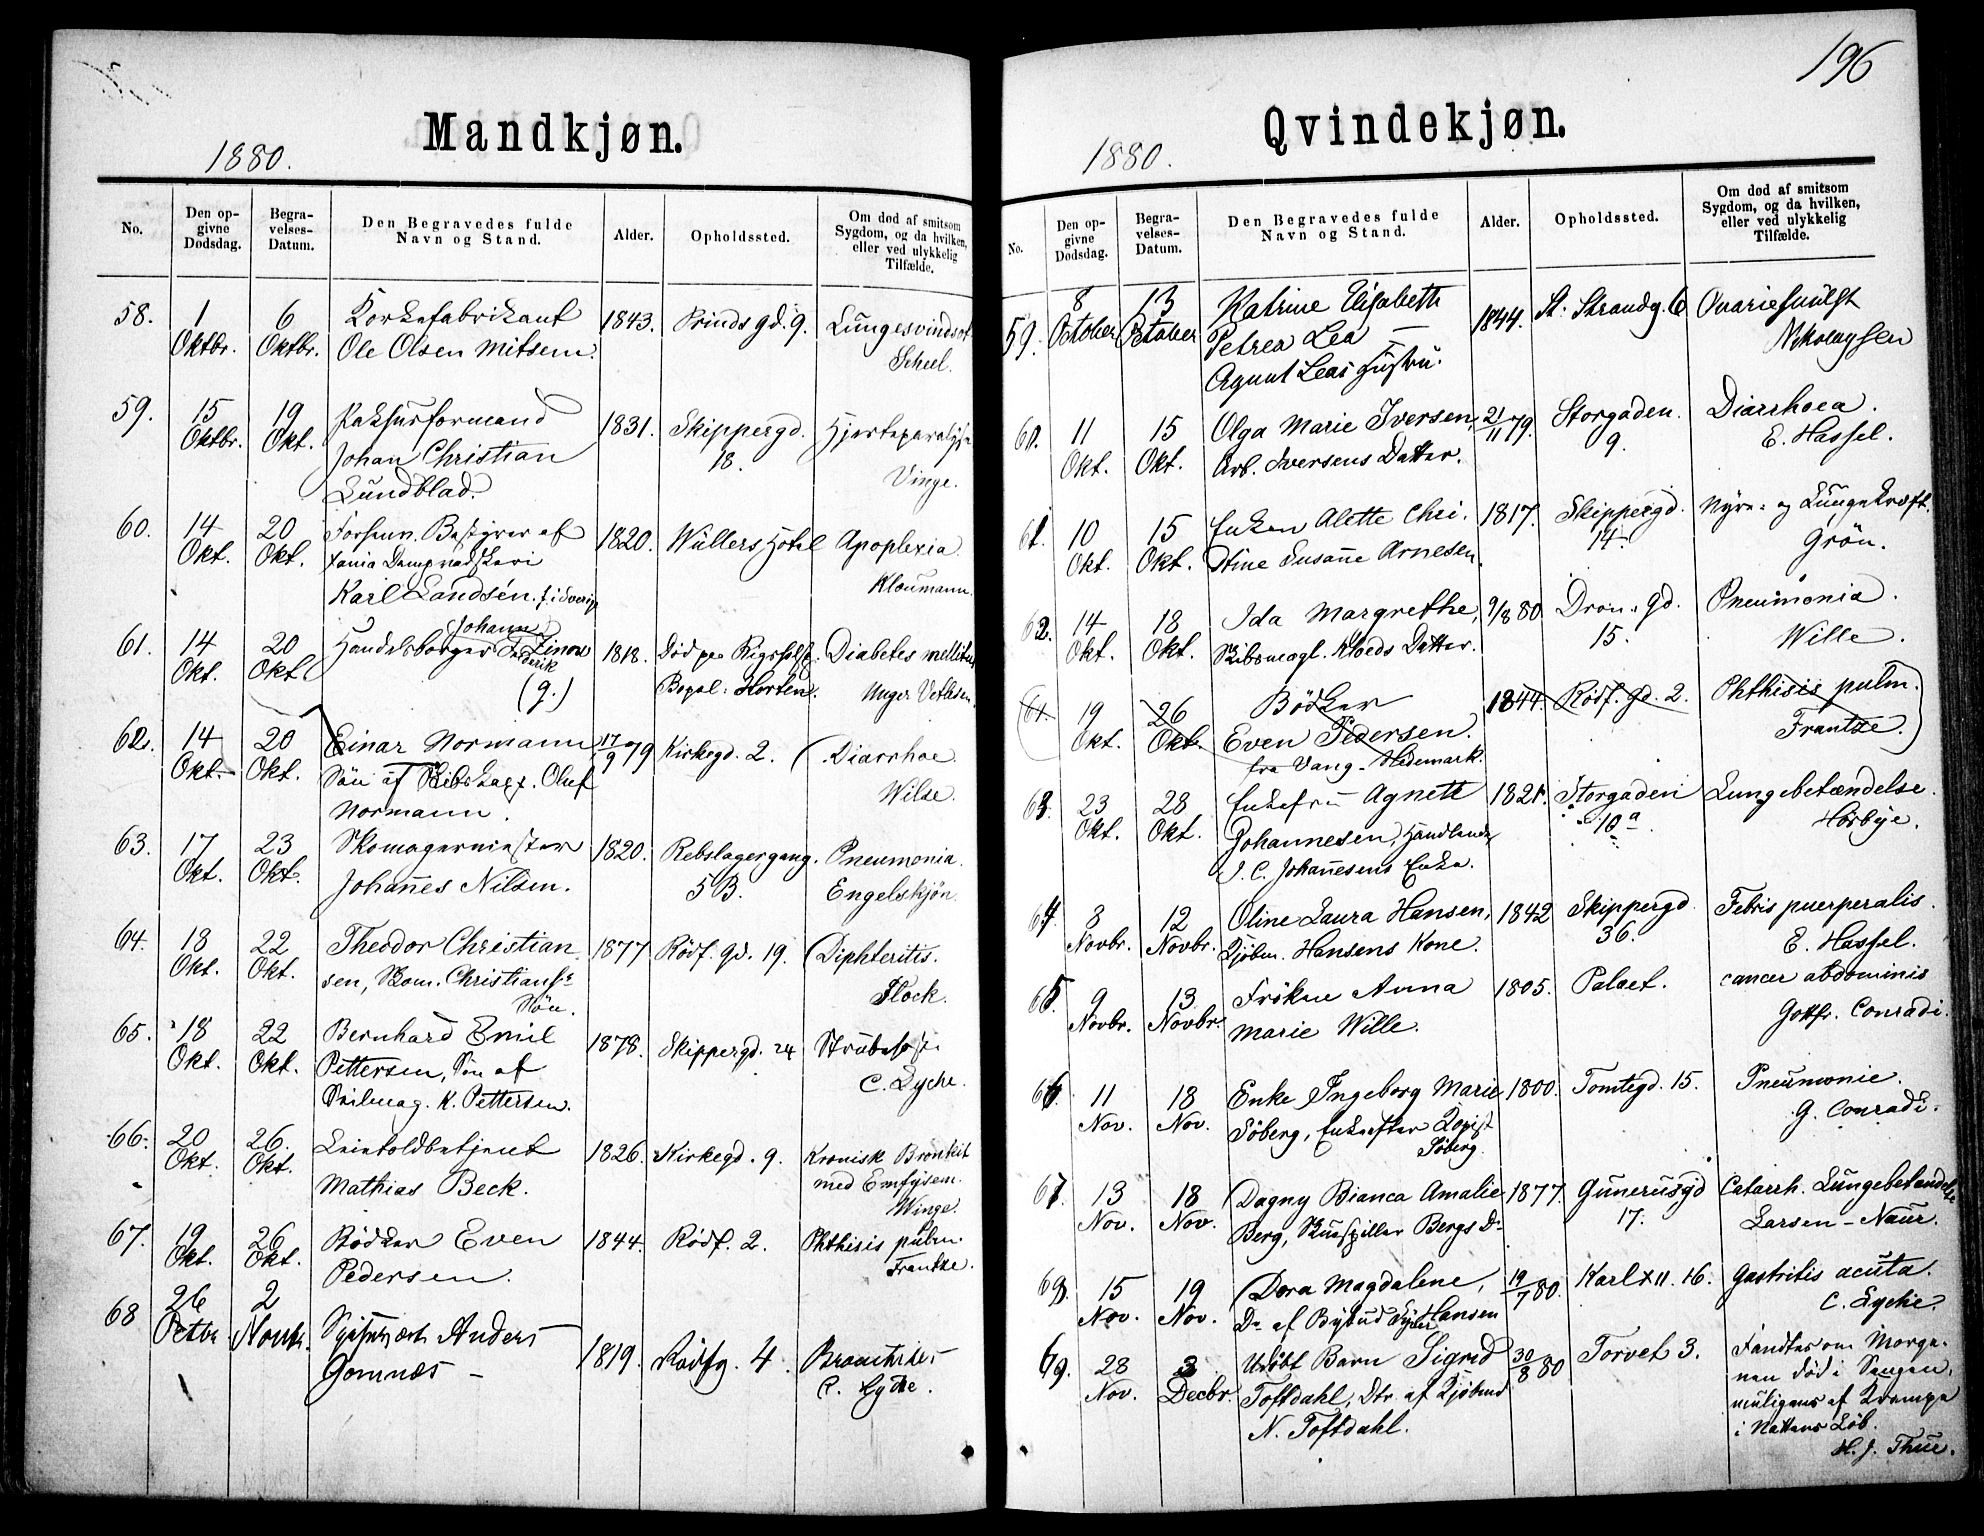 196
Mandkjøn.
1880.
No.
Den op-
givne
Dødsdag.
Begra-
velses-
Datum.
Den Begravedes fulde
Navn og Stand.
Alder.
Opholdssted.
Om død af smitsom
Sygdom, og da hvilken,
eller ved ulykkelig
Tilfælde.
58. 1 6 Korkefabrikant 1843. Prinds gd. 9. Lungesvindsot
Oktbr. Oktbr. Ole Olsen
Scheel.
59. 15 19 Pakhusformand 1831. Skippergd. Hjerteparalyse
Oktbr. Okt. Johan Christian 18.
Lundblad. Vinge.
60. 14 20 Forhen. Bestyrer af 1820. Wüllers Hotel Apoplexia.
Okt. Okt.
Karl Landsén. f. i Sverige Kloumann.
61. 14 20 Handelsborger Johann 1818. Død paa Rigshosp. Diabetes mellitus
Okt. Okt Frederik Bopæl: Horten. Unger Vetlesen.
(g.)
62. 14 20 Einar Normann 17/9 79 Kirkegd. 2. (Diarrhoe
Okt. Okt. Søn af Skibskapt. Oluf Wilse.
Normann.
63. 17 23 Skomagermester 1820. Rebslagergang. Pneumonia.
Okt. Okt. Johannes Nilsen. 5 B. Engelskjön.
64. 18 22 Theodor Christian 1877 Rödf. gd. 19. (Diphteritis.
Okt. Okt. sen, Christians
Søn.
65. 18 22 Bernhard Emil 1878. Skippergd. 24 Strubehoste
Okt. Okt. Pettersen, Søn af C. Lyche.
Seilmag. K. Pettersen.
66. 20 26. 1826. Kirkegd. 9. Kronisk Bronkit
Okt. Okt. Mathias Beck. med Emfysem.
Winge.
67. 19 26 Bödker Even 1844. Rödf. 2. Phthisis pulm.
Okt. Okt. Pedersen. Frantze.
68 26 2 Anders 1819. Rödfg. 4. Bronchites
Octbr Novbr. Gomnæs — C. Lyche.
Qvindekjøn.
1880.
No.
Den op-
givne
Dødsdag.
Begra-
velses-
Datum.
Den Begravedes fulde
Navn og Stand.
Alder.
Opholdssted.
Om død af smitsom
Sygdom, og da hvilken,
eller ved ulykkelig
Tilfælde.
59. 8 13 Katrine Elisabeth 1844. St. Strandg. 6 Ovariesvulst
October October Petrea Lea — Nikolaysen
Agent Leas Hustru.
60. 11 15 Olga Marie Iversen, 21/11 79. Storgaden. Diarrhoea.
Okt. Okt. Arb. Iversens Datter. 9. E. Hassel.
61. 10 15 Enken Alette Chri. 1817. Skippergd. Nyre- og Lungekræft.
Okt. Okt. stine Susanne Arnesen. 14. Grön.
62. 14 18 Ida Margrethe, 9/8 80. Dron. gd. Pneumonia.
Okt. Okt. Skibsmægl. Kloeds Datter. 15. Wille.
(61. 19 26 Bödker 1844. Rödf. gd. 2. Phthisis pulm.
Okt. Okt. Even Pedersen. Frantze.)
fra Vang. Hedemark.
63. 23 28 Enkefru Agnete 1821. Storgaden Lungebetændelse.
Okt. Okt. Johannesen, Handlende 10a. Hörbye.
J. C. Johannesens Enke.
64 8 12 Oline Laura Hansen, 1842 Skippergd. Febris puerperalis.
Novbr. Novbr. Kjøbm. Hansens Kone. 36. E. Hassel.
65. 9 13 Frøken Anna 1805. Palæet. cancer abdominis
Novbr. Novbr. Marie Wille. Gottfr. Conradi.
66. 11 18 Enke Ingeborg Marie 1800. Tomtegd. 15. Pneumonie.
Nov. Nov. Söberg, Enke efter G. Conradi.
Söberg.
67. 13 18 Dagny Bianca Amalie 1877. Gunerusgd Catarrh. Lungebetændelse
Nov. Nov. Berg, Skuespiller Bergs D. 17. Larsen-Naur.
68. 15 19 Dora Magdalene, 19/7 80. Karl XII. 16. Gastritis acuta.
Nov. Nov. D. af Bybud Hansen C. Lyche.
69. 28 3 Udøbt Barn Sigrid 30/8 80 Torvet 3. Fandtes om Morge-
Nov. Decbr. Toftdahl, Dtr. af Kjøbmd nen død i Sengen,
N. Toftdahl. muligens af Krampe
i Nattens Løb.
H. J. Thue.